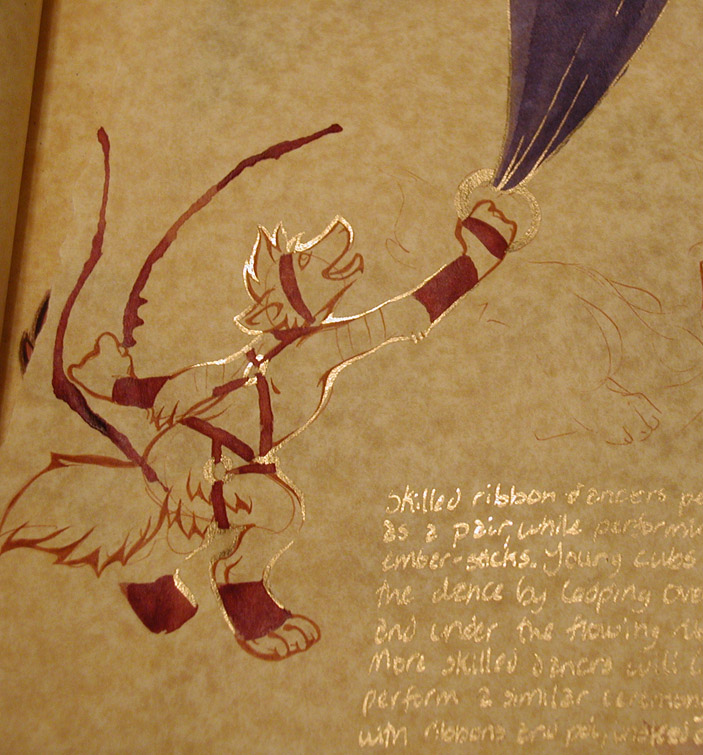 Skilled ribbon dancers pe
as a pair, while performin
ember-sticks. Young cubs
the dance by leaping ove
and under the flowing
More skilled dancers will
perform a similar ceremon
with ribbons and